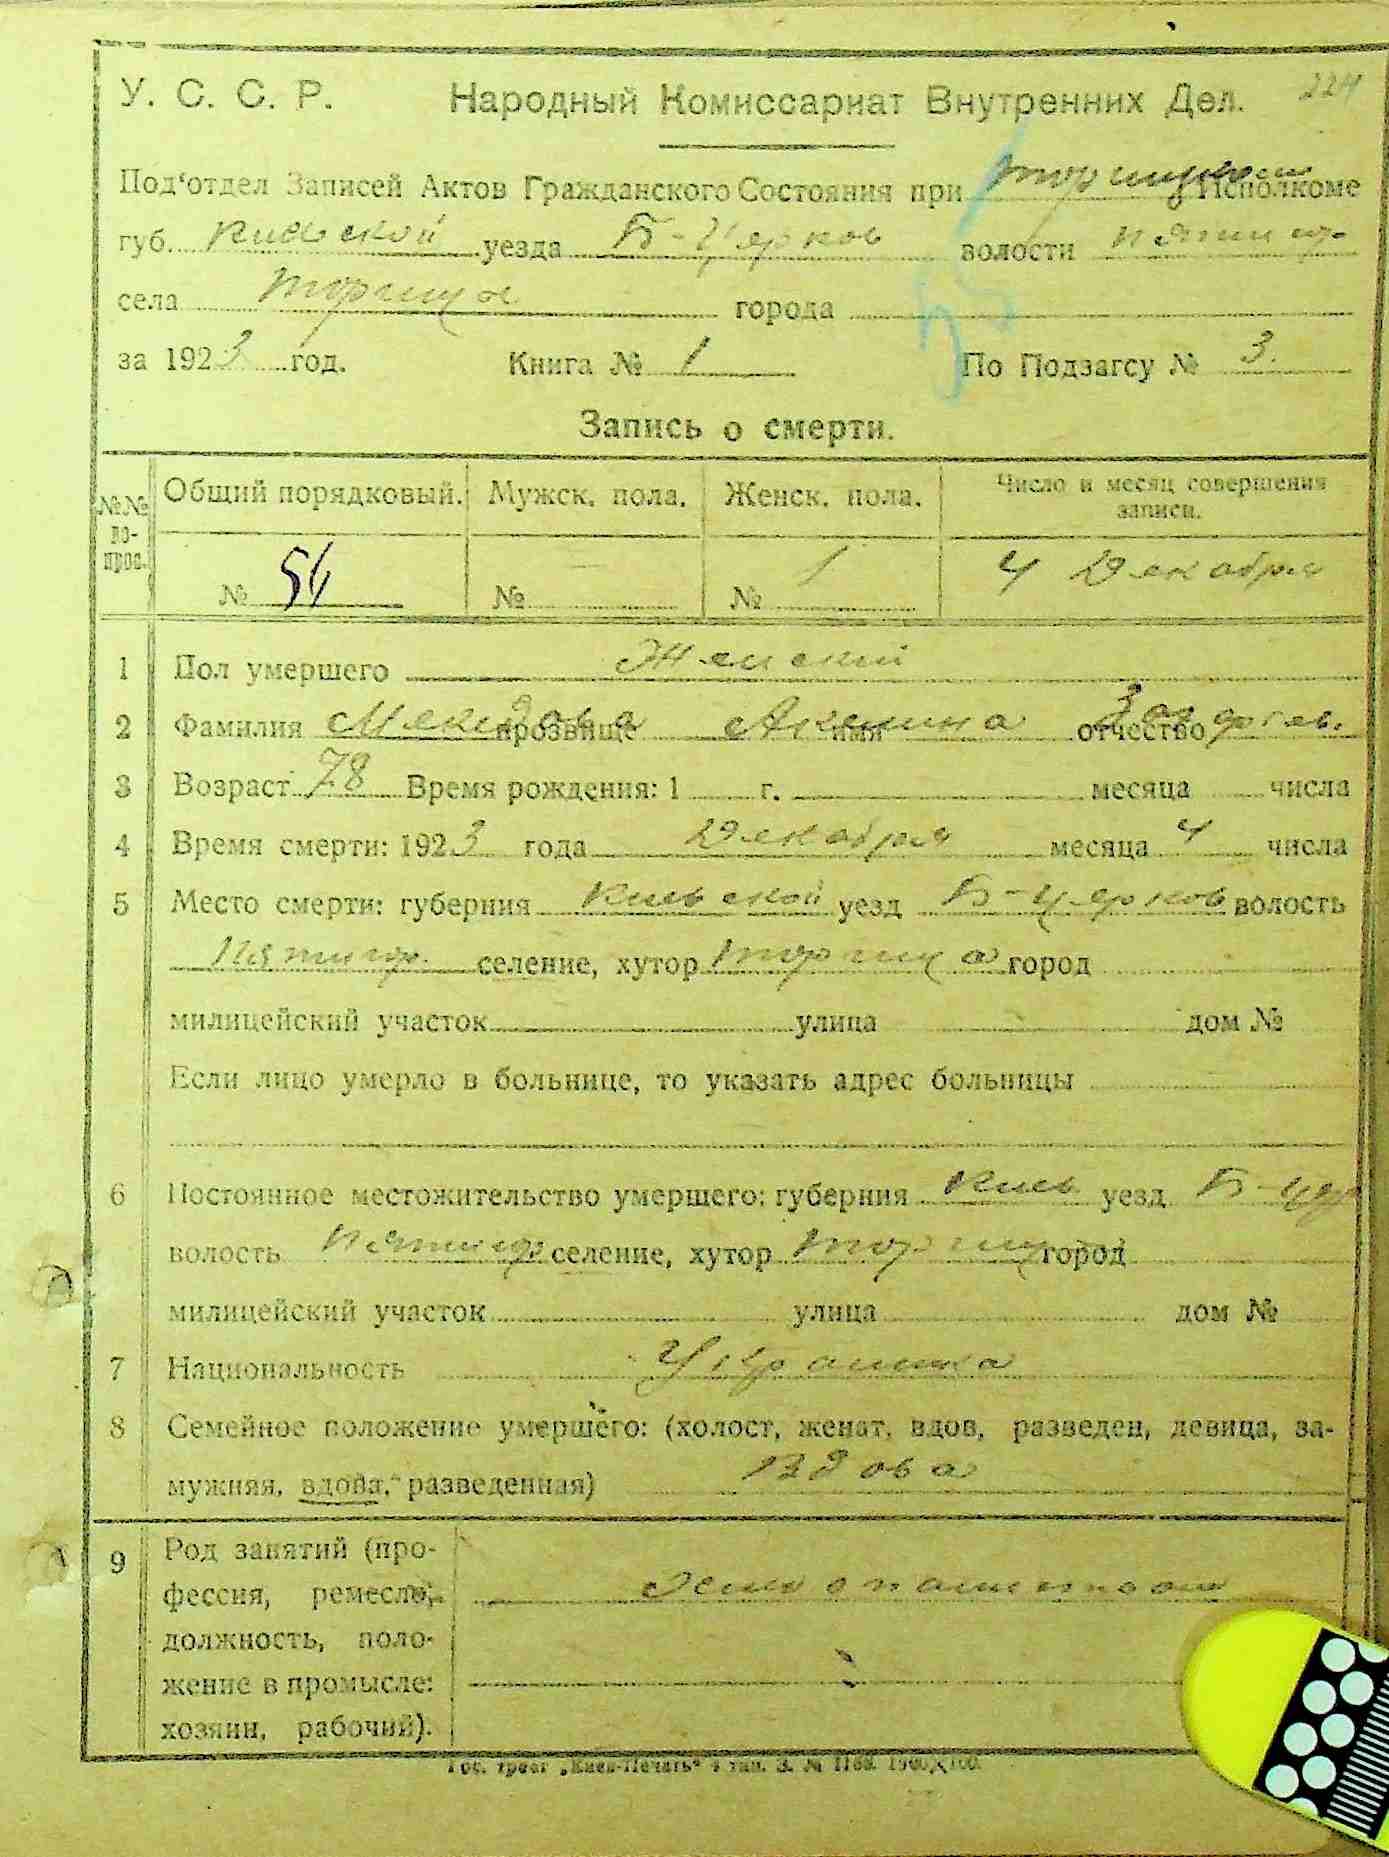 224
У. С. С. Р. Народный Комиссариат Внутренних Дел.
Под'отдел Записей Актов Гражданского Состояния при Исполкоме
губ. Киевской уезда Б-Церков волости Пятигор.
села Торчица города
за 1923 год. Книга № 1 По Подзагсу № 3.
Запись о смерти.
№№ вопрос. Общий порядковый. Мужск. пола. Женск. пола. Число и месяц совершения записи.
№ 54 № — № 1 4 Декабря
1 Пол умершего Женский
2 Фамилия прозвище имя отчество
3 Возраст 78 Время рождения: 1 г. месяца числа
4 Время смерти: 1923 года Декабря месяца 4 числа
5 Место смерти: губерния Киевской уезд Б-Церков волость
Пятигор. селение, хутор Торчица город
милицейский участок улица дом №
Если лицо умерло в больнице, то указать адрес больницы
6 Постоянное местожительство умершего: губерния Киев уезд Б-Цер
волость Пятигор. селение, хутор Торчиц город
милицейский участок улица дом №
7 Национальность Украинка
8 Семейное положение умершего: (холост, женат, вдов, разведен, девица, за-
мужняя, вдова, разведенная) Вдова
9 Род занятий (про-
фессия, ремесло,
должность, поло-
жение в промысле:
хозяин, рабочий).
Гос. трест „Киев-Печать“ 4 тип. З. №